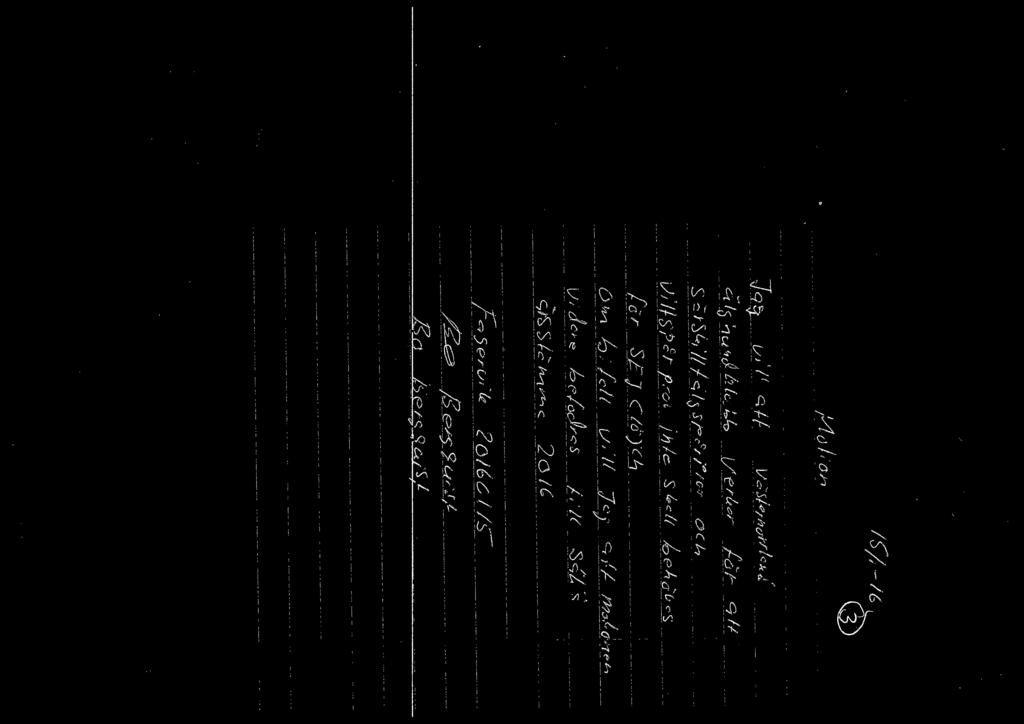 15/1-16
3
Motion
Jag vill att Västernorrland
älghundklubb verkar för att
särskiltälgspårprov och
viltspårprov inte skall behövas
för SEJ (lö)ch
om bifall vill Jag att motionen
vidare befodras till SÄKs
årsstämma 2016
Fagervik 20160115
Bo Bergquist
Bo Bergquist